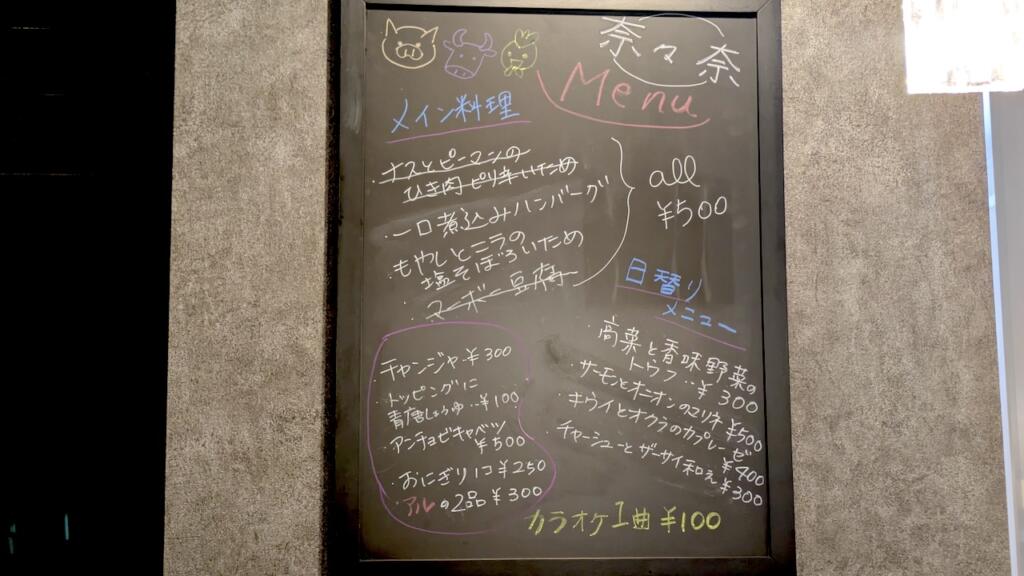 奈々奈
Menu
メイン料理
・ナスとピーマンの
ひき肉ピリ辛いため
・一口煮込みハンバーグ
・もやしとニラの
塩そぼろいため
・マーボー豆腐
all
¥500
日替り
メニュー
・高菜と香味野菜の
トウフ‥¥300
・サーモンとオニオンのマリネ¥500
・キウイとオクラのカプレーゼ
¥400
・チャーシューとザーサイ和え¥300
・チャンジャ¥300
・トッピングに
青唐しょうゆ‥¥100
・アンチョビキャベツ
¥500
・おにぎり1コ¥250
・アルの2品¥300
カラオケ1曲¥100